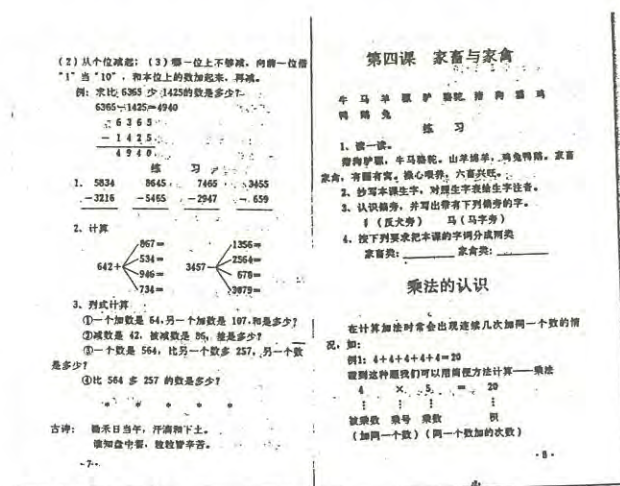 (2)从个位减起；(3)哪一位上不够减，向前一位借
"1"当"10"，和本位上的数加起来，再减。
例：求比 6365 少 1425的数是多少？
6365－1425＝4940
6 3 6 5
－ 1 4 2 5
4 9 4 0
练 习
1． 5834 8645 7465 3455
－3216 －5465 －2947 －659
2、计算
642＋
867＝
534＝
946＝
734＝
3457－
1356＝
2564＝
678＝
3079＝
3、列式计算
①一个加数是 64,另一个加数是 107,和是多少？
②减数是 42，被减数是 86，差是多少？
③一个数是 564，比另一个数多 257，另一个数
是多少？
④比 564 多 257 的数是多少？
* * * * *
古诗： 锄禾日当午，汗滴和下土。
谁知盘中餐，粒粒皆辛苦。
·7·
第四课 家畜与家禽
牛 马 羊 骡 驴 骆驼 猪 狗 猫 鸡
鸭 鹅 兔
练 习
1、读一读。
猪狗驴骡，牛马骆驼。山羊绵羊，鸡兔鸭鹅。家畜
家禽，有圈有窝。操心喂养，六畜兴旺。
2、抄写本课生字，对照生字表给生字注音。
3、认识偏旁，并写出带有下列偏旁的字。
犭（反犬旁） 马（马字旁）
4、按下列要求把本课的字词分成两类
家畜类：________ 家禽类：________
乘法的认识
在计算加法时常会出现连续几次加同一个数的情
况，如：
例1：4＋4＋4＋4＋4＝20
碰到这种题我们可以用简便方法计算——乘法
4 × 5 ＝ 20
被乘数 乘号 乘数 积
（加同一个数）（同一个数加的次数）
·8·